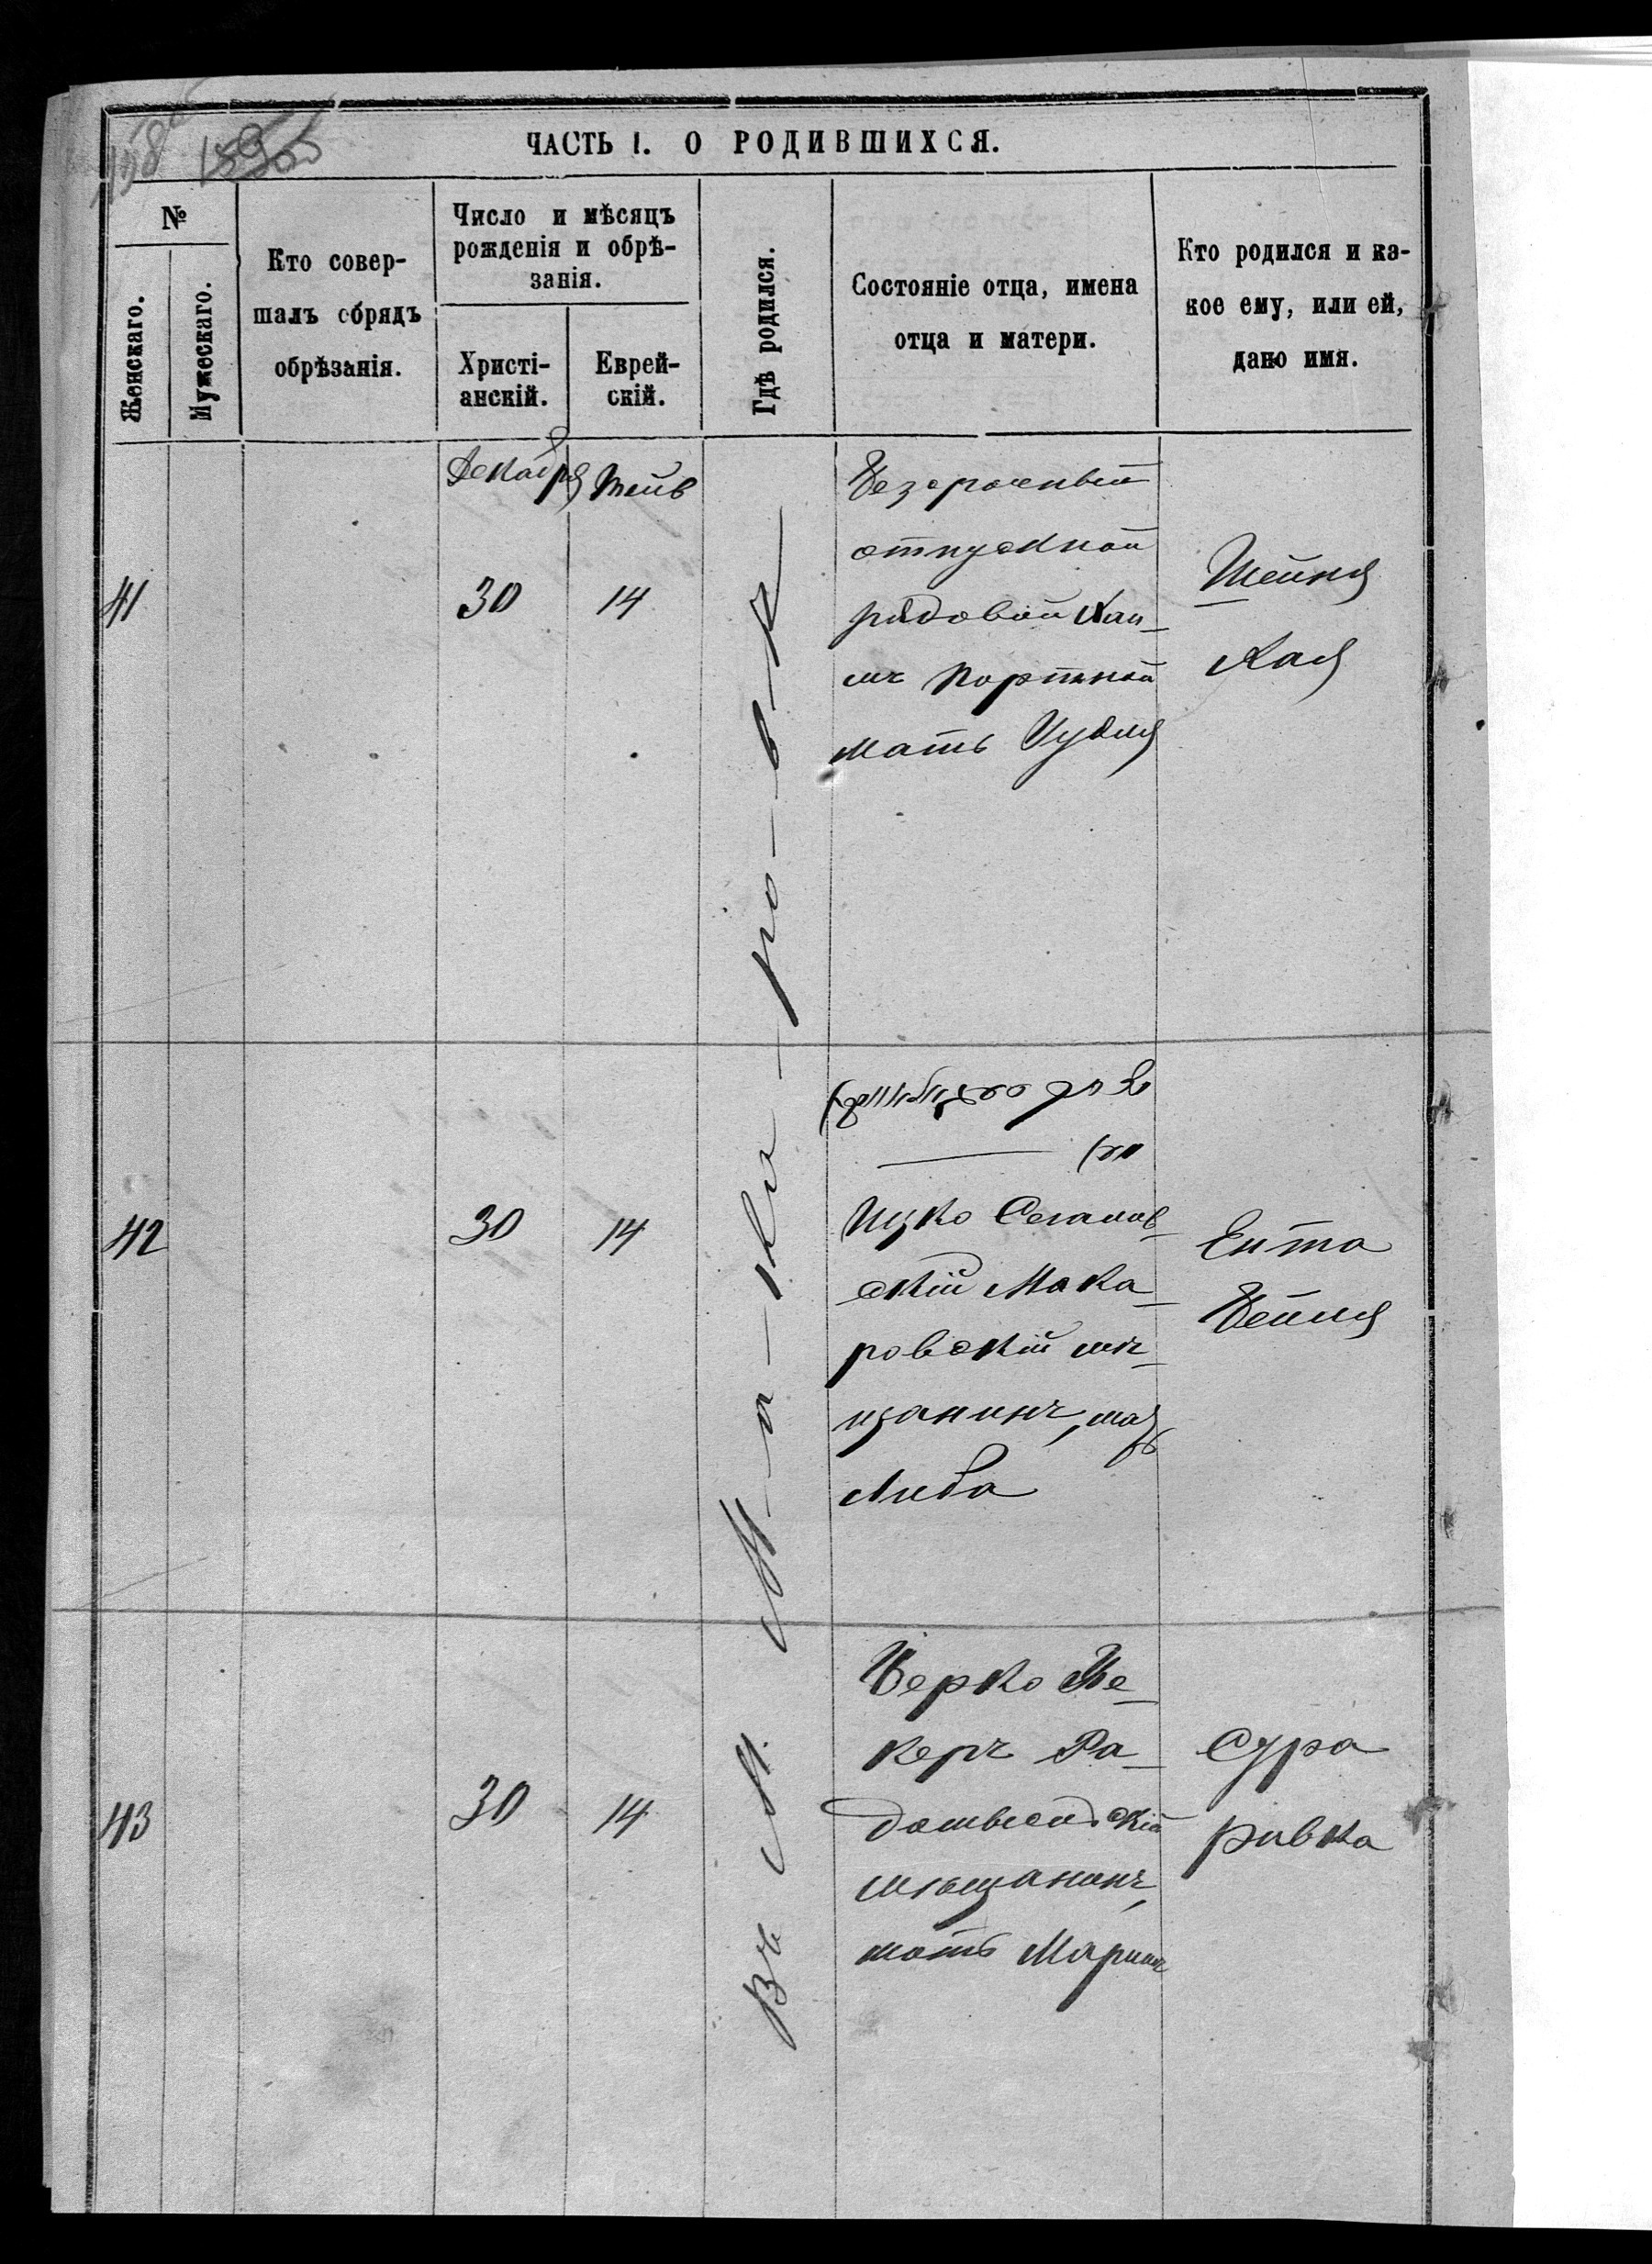 158об
ЧАСТЬ I. О РОДИВШИХСЯ.
№
Женскаго.
Мужескаго.
Кто совер-
шалъ обрядъ
обрѣзанія.
Число и мѣсяцъ
рожденія и обрѣ-
занія.
Христі-
анскій.
Еврей-
скій.
Гдѣ родился.
Состояніе отца, имена
отца и матери.
Кто родился и ка-
кое ему, или ей,
дано имя.
Декабря
Тейв
Въ М. Ма-ка-ро-въ
41
30
14
Безсрочный
отпускной
рядовой Хаи-
мъ Портной
мать Чудня
Шейня
Хая
42
30
14
Ицко Сегалов-
скій Мака-
ровскій мѣ-
щанинъ, мать
Либа
Ента
Бейля
43
30
14
Берко Ве-
керъ Ра-
домысльскій
мѣщанинъ,
мать
Сура
Ривка